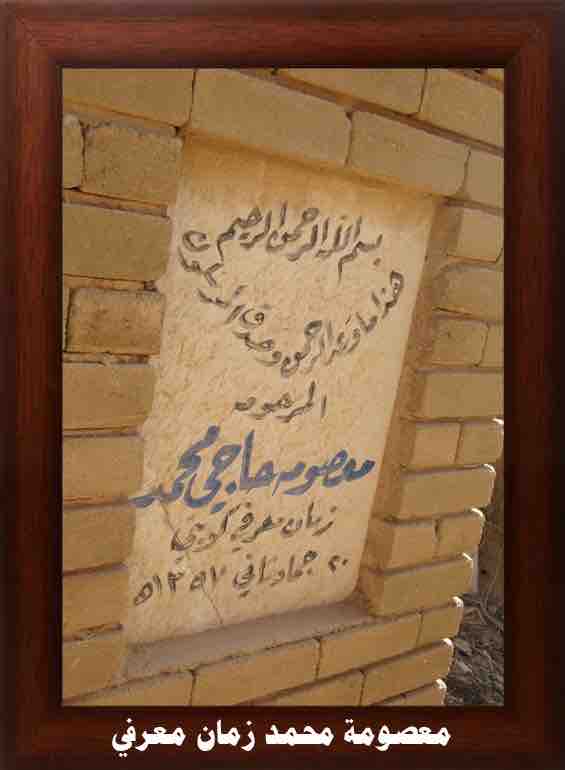 بسم الله الرحمن الرحيم
هذا ما وعد الرحمن وصدق المرسلون
المرحومه
معصومه حاجي محمد
زمان معرفي كويتي
٢٠ جمادثاني ١٣٥٧ه
معصومة محمد زمان معرفي